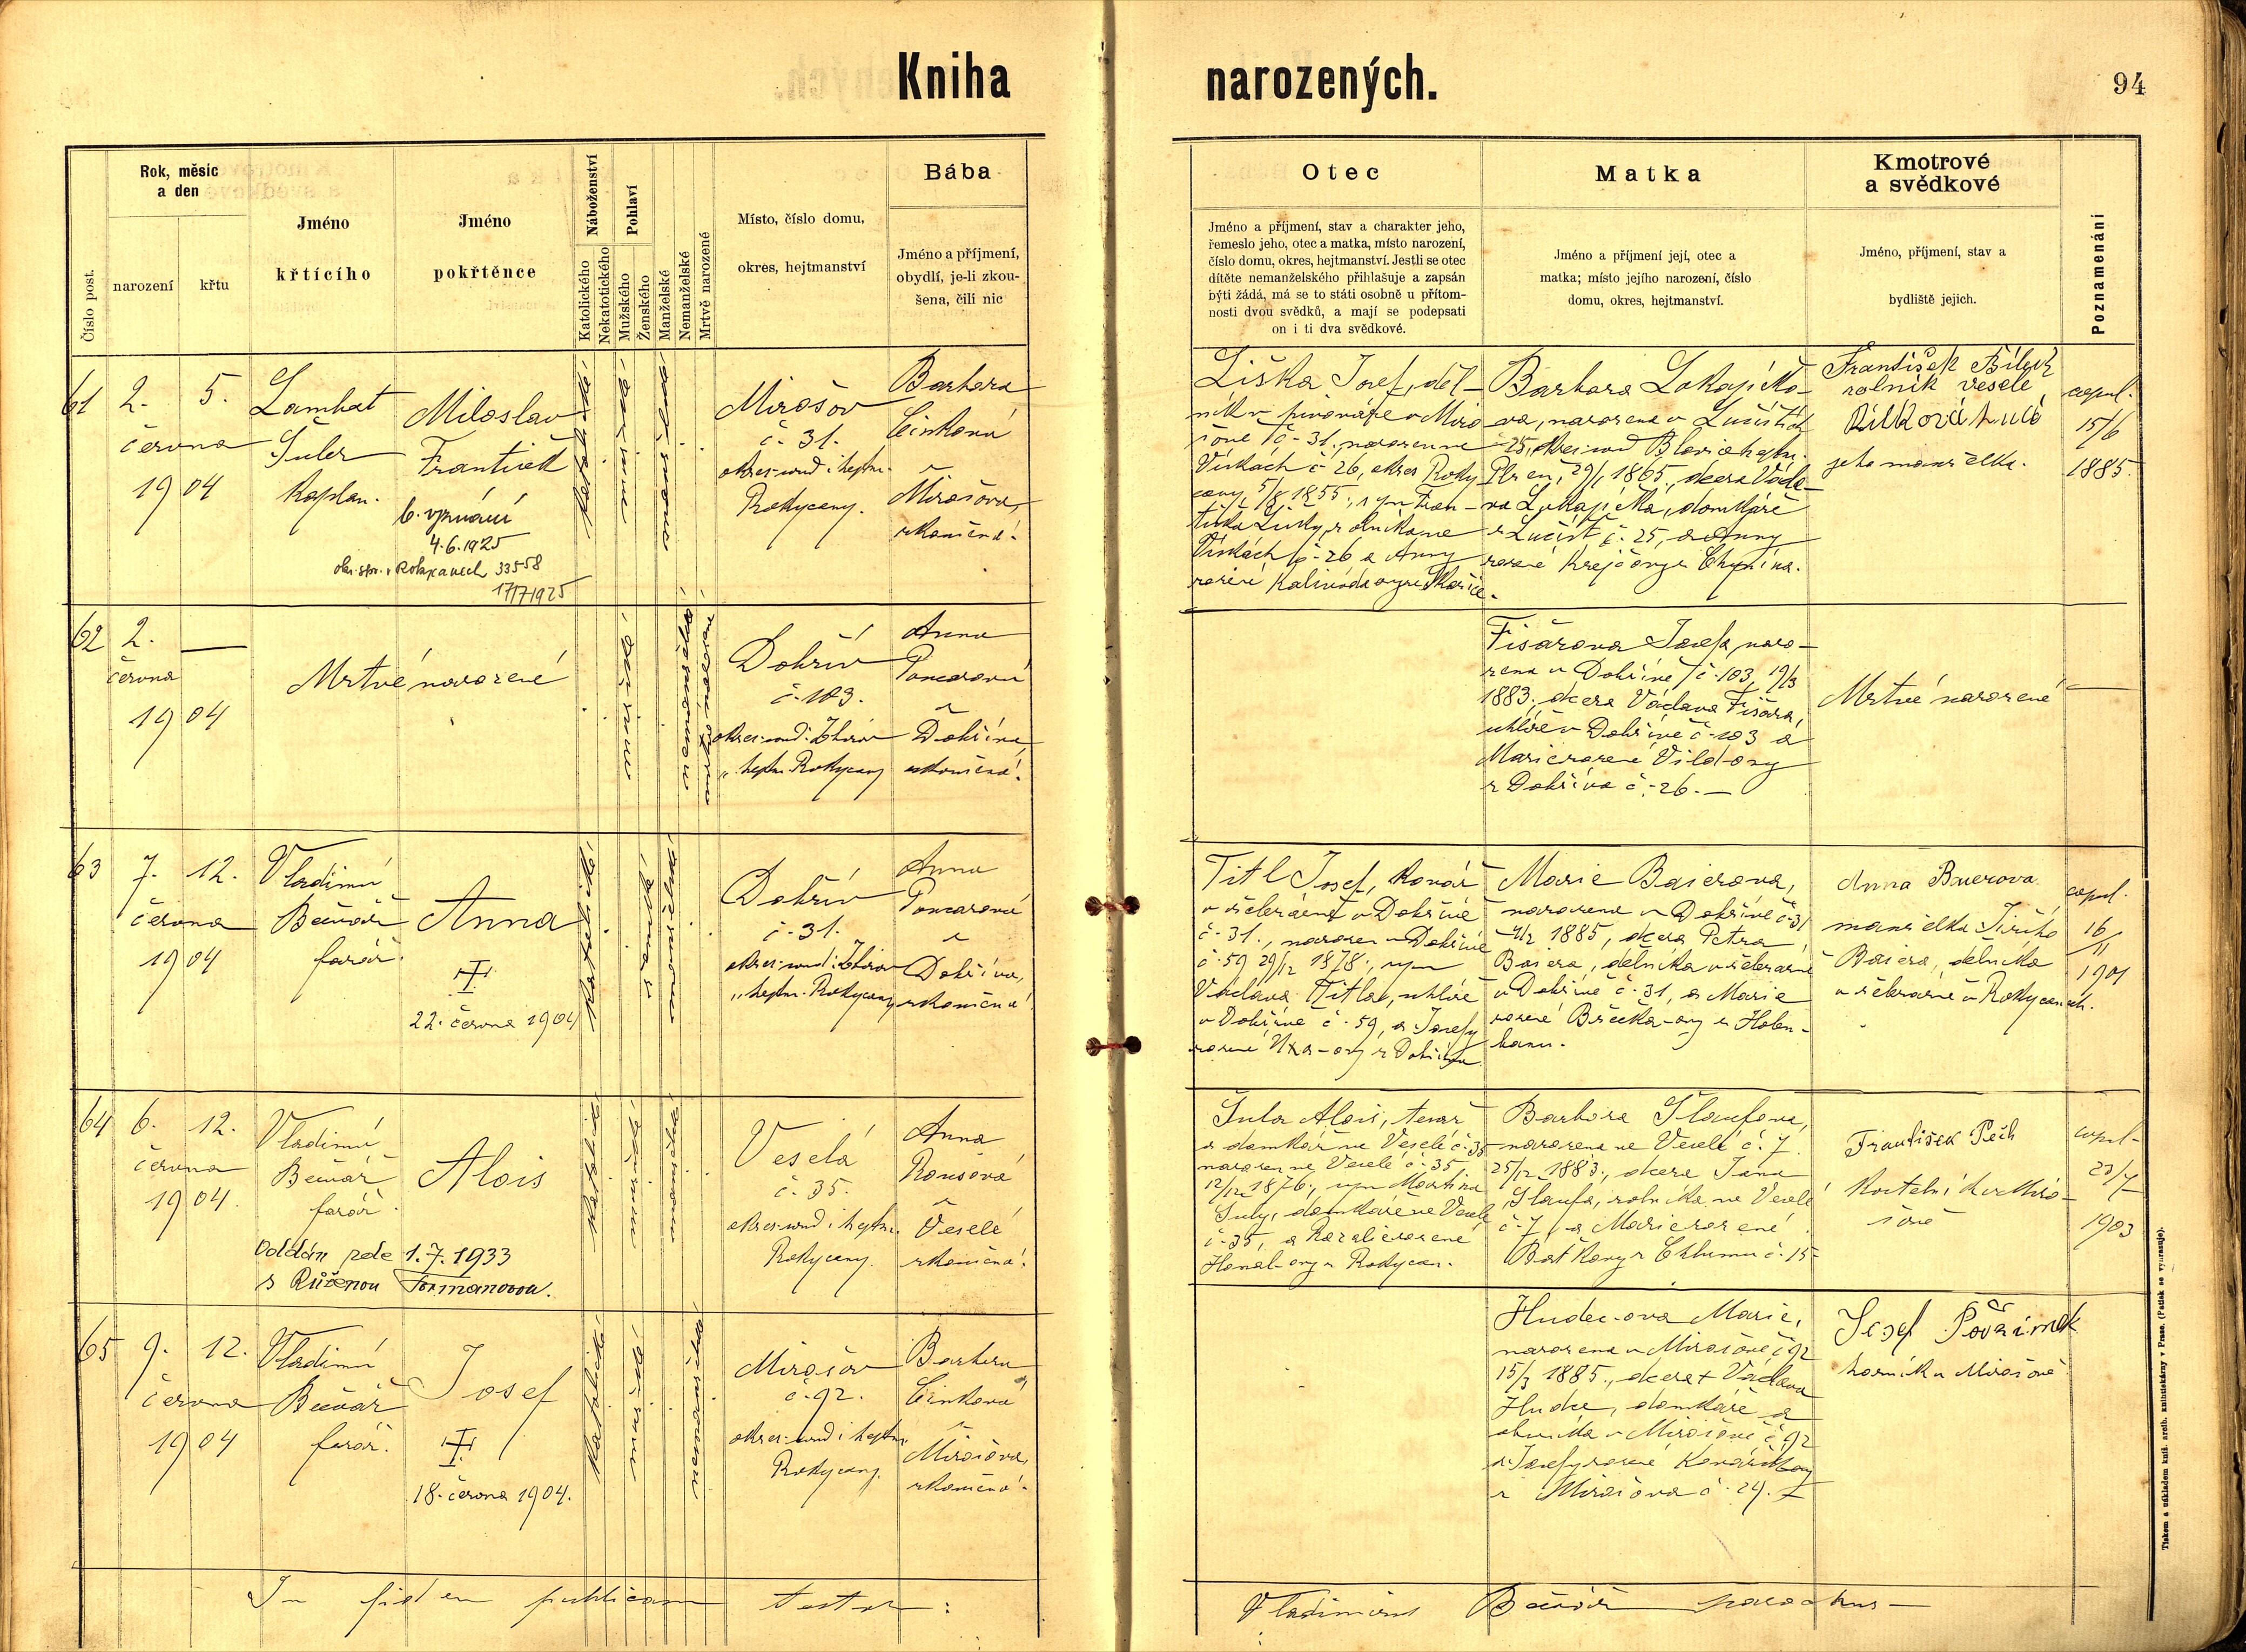 Kniha narozených.
94
Rok, měsíc
a den
narození
křtu
Číslo post.
Jméno
křtícího
Jméno
pokřtěnce
Náboženství
Katolického
Nekatolického
Pohlaví
Mužského
Ženského
Manželské
Nemanželské
Mrtvě narozené
Místo, číslo domu,
okres, hejtmanství
Bába
Jméno a příjmení,
obydlí, je-li zkou-
šena, čili nic
Otec
Jméno a příjmení, stav a charakter jeho,
řemeslo jeho, otec a matka, místo narození,
číslo domu, okres, hejtmanství. Jestli se otec
dítěte nemanželského přihlašuje a zapsán
býti žádá, má se to státi osobně u přítom-
nosti dvou svědků, a mají se podepsati
on i ti dva svědkové.
Matka
Jméno a příjmení její, otec a
matka; místo jejího narození, číslo
domu, okres, hejtmanství.
Kmotrové
a svědkové
Jméno, příjmení, stav a
bydliště jejich.
Poznamenání
61
2. 5.
června
1904
Lambert
kaplan.
Miloslav
František
b. vyznání
4.6.1925
33558
17/7 1925
katolické
mužské
manželské
Mirošov
č. 31.
okres soud i hejtm.
Rokycany.
Barbora
Cinková
z Mirošova,
zkoušená.
Liška Josef, děl-
ník v pivováře v Miro
šově č. 31, narozen ve
Vískách č. 26, okres Roky
cany, 5/8 1855, syn Fran-
tiška Lišky, rolníka ve
Vískách č. 26 a Anny
rozené Kalivoda
Barbora Lokajíčko-
va, narozena v Lučištích
č. 25, okres soud Blovice hejtm.
Plzeň, 29/1 1865, dcera Václa-
va Lokajíčka, domkáře
z Lučišť č. 25, a Anny
rozené Krejčovy z Chynína.
František Bílek
rolník Veselé
jeho manželka.
copul.
15/6
1885.
62
2. —
června
1904
Mrtvé narozené
mužské
nemanželské
mrtvě narozené
Dobřív
č. 103.
okres soud: Zbiroh
„ hejtm. Rokycany
Anna
Poncarová
z Dobříva,
zkoušená.
Fišárova Josefa, naro-
zena v Dobřívě č. 103, 19/3
1883, dcera Václava Fišára,
uhlíře v Dobřívě č. 103 a
Marie rozené Vild-ovy
z Dobříva č. 26. —
Mrtvé narozené —
63
7. 12.
června
1904
Vladimír
Bečvář
farář.
Anna
22. června 1904
katolické
ženské
manželské
Dobřív
č. 31.
okres soud: Zbiroh
„ hejtm. Rokycany
Anna
Poncarová
z Dobříva,
zkoušená
Titl Josef, kovář
v železárně v Dobřívě
č. 31., narozen v Dobřívě
č. 59 29/12 1878, syn
Václava Titla, uhlíře
v Dobřívě č. 59, a Josefy
z Dobříva
Marie Baierova,
narozena v Dobřívě č. 31
1885, dcera Petra
Baiera, dělníka v železárně
v Dobřívě č. 31, a Marie
rozené Brečka-ovy z Holou-
bkova.
Anna Buerova
manželka Jiřího
Baiera, dělníka
v železárně v Rokycanech.
copul.
16/11
1901
64
6. 12.
června
1904.
Vladimír
Bečvář
farář.
Alois
Oddán zde 1.7.1933
s Růženou Formanovou.
katolické
mužské
manželské
Veselá
č. 35.
okres soud i hejtm.
Rokycany.
Anna
Roušová
z Veselé
zkoušená.
Šula Alois, tesař
a domkář ve Veselé č. 35
narozen ve Veselé č. 35
12/12 1876, syn Martina
Šuly, domkáře ve Veselé
č. 35, a Rozalie rozené
z Rokycan.
Barbora Šlaufova,
narozena ve Veselé č. 7.
25/12 1883., dcera Jana
Šlaufa, rolníka ve Veselé
č. 7, a Marie rozené
z Chlumu č. 15
František Pech
kostelník v Miro-
šově
copul.
23/7
1903
65
9. 12.
června
1904
Vladimír
Bečvář
farář.
Josef
18. června 1904.
katolické
mužské
nemanželské
Mirošov
č. 92.
okres soud i hejtm.
Rokycany.
Barbora
Cinková
z Mirošova,
zkoušená.
Hudec-ova Marie,
narozena v Mirošově č. 92
15/3 1885., dcera † Václava
Hudce, domkáře a
v Mirošově č. 92
a Josefy rozené
z Mirošova č. 24.
Josef Požárnek
horník v Mirošově
In fidem publicam testor:
Vladimirus Bečvář parochus —